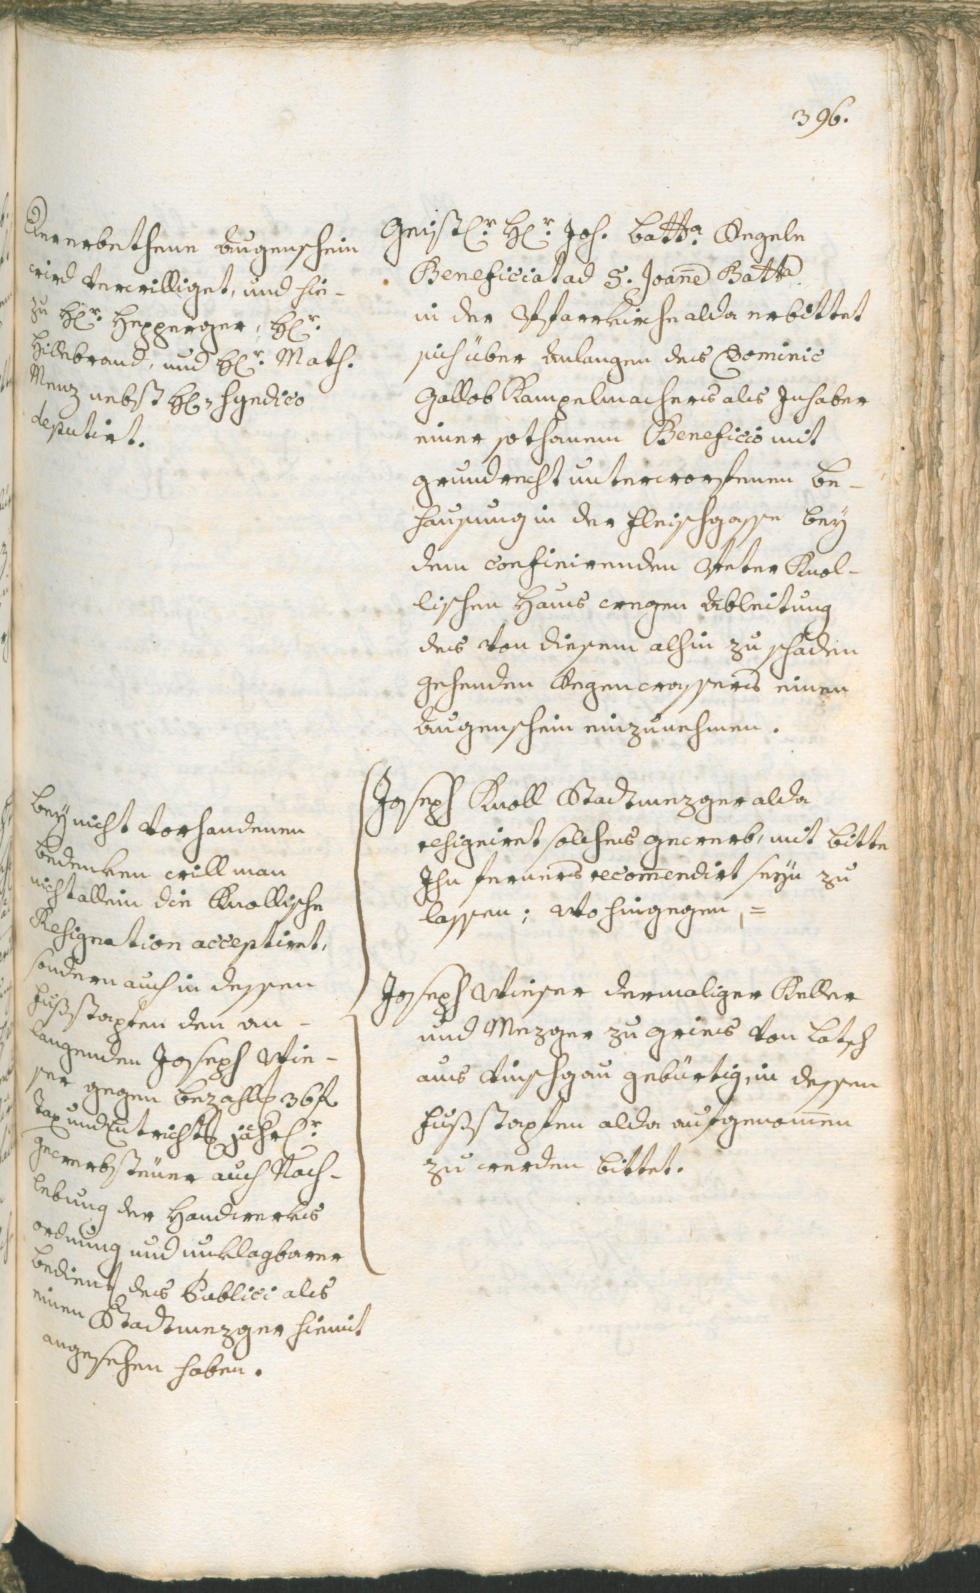 396.
Der erbethene Augenschein
wird verwilliget, und hie-
zu H(er)r Hepperger, H(er)r
Hillebrand, und H(er)r Math.
Menz nebst H: Syndico
deputirt.
Geistl(iche)r H(er)r Joh. Batt(ist)a Regele
Beneficiat ad S. Joan̅e Batta
in der Pfarrkirche alda erbittet
sich über Anlangen des Dominic
Gallob Kampelmachers als Inhaber
einer sothanem Beneficio mit
grundrecht unterworfenen Be-
hausung in der Fleischgasse bey
dem confinirenden Peter Knol-
lischen Haus wegen Ableitung
des von diesem alhin zu schaden
gehenden Regenwassers einen
Augenschein einzunehmen.
Bey nicht vorhandenen
bedenken will man
nicht allein die Knollische
Resignation acceptiret,
sondern auch in dessen
fußstapfen den an-
langenden Joseph Wie-
ser gegen bezahlt 36 f
Tax und Entricht jährl(iche)r
gewerbsteuer auch Nach-
lebung der Handwerks
ordnung und unklagbarer
Bedien des Publici als
einen Stadtmezger hiemit
angesehen haben.
Joseph Knoll Stadtmezger alda
resigniret solches gewerb, mit bitte
Ihn ferners recom̅endirt seyn zu
lassen; wohingegen, =
Joseph Wieser dermaliger Keller
und Mezger zu Gries von Latsch
aus Vinschgau gebürtig, in dessen
fußstapfen alda aufgenom̅en
zu werden bittet.